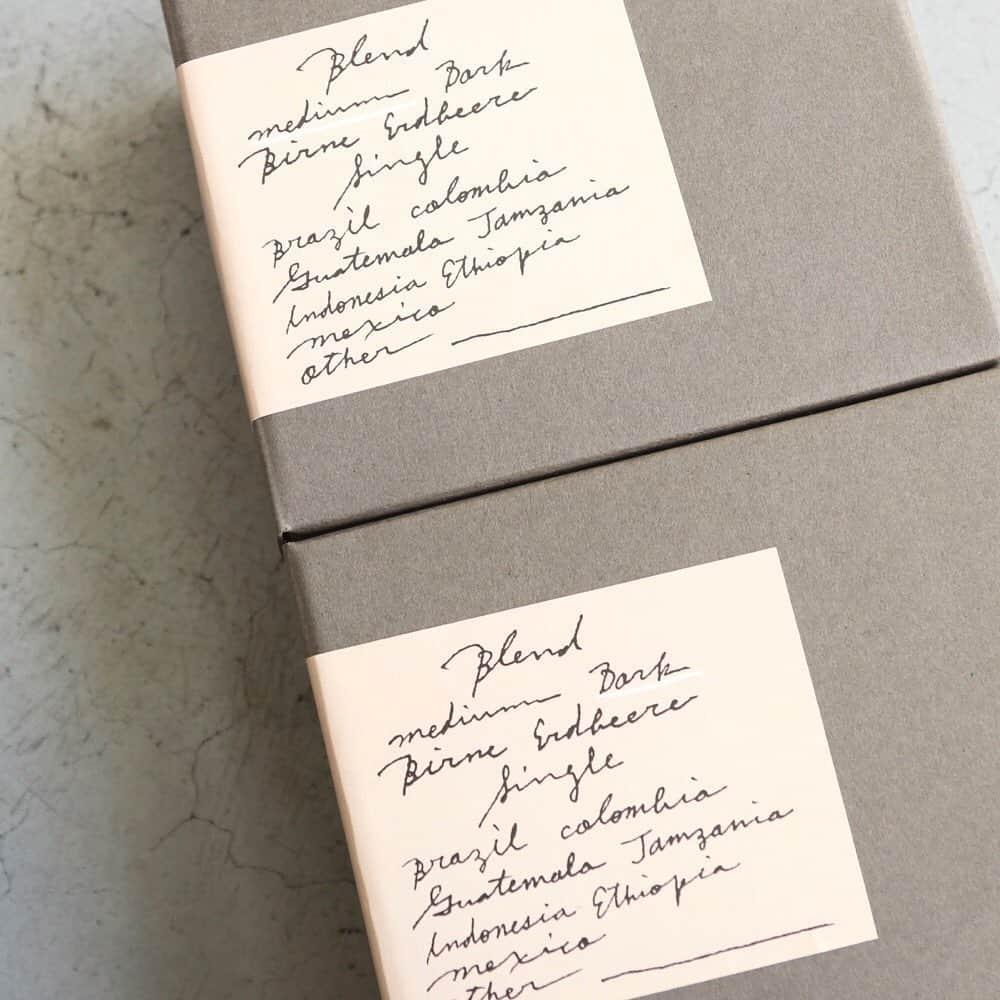 Blend
medium Dark
Birne Erdbeere
Single
Brazil colombia
Guatemala Tamzania
Indonesia Ethiopia
mexico
other
Blend
medium Dark
Birne Erdbeere
Single
Brazil colombia
Guatemala Tamzania
Indonesia Ethiopia
mexico
other